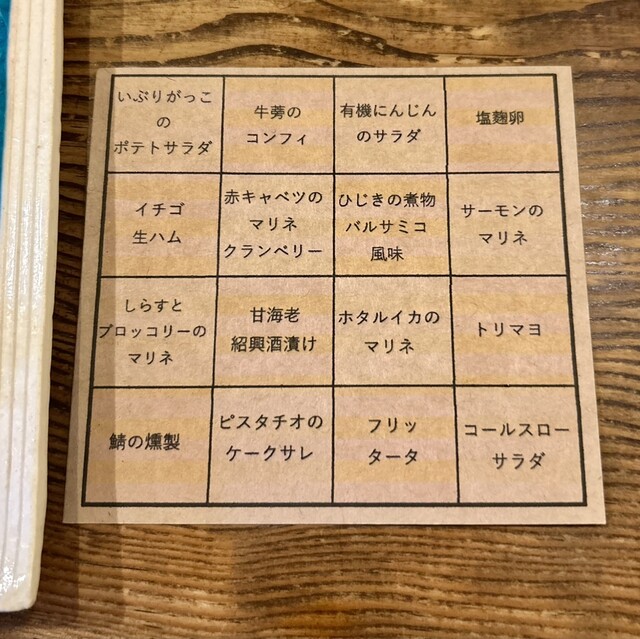 いぶりがっこ
の
ポテトサラダ
牛蒡の
コンフィ
有機にんじん
のサラダ
塩麹卵
イチゴ
生ハム
赤キャベツの
マリネ
クランベリー
ひじきの煮物
バルサミコ
風味
サーモンの
マリネ
しらすと
ブロッコリーの
マリネ
甘海老
紹興酒漬け
ホタルイカの
マリネ
トリマヨ
鯖の燻製
ピスタチオの
ケークサレ
フリッ
タータ
コールスロー
サラダ